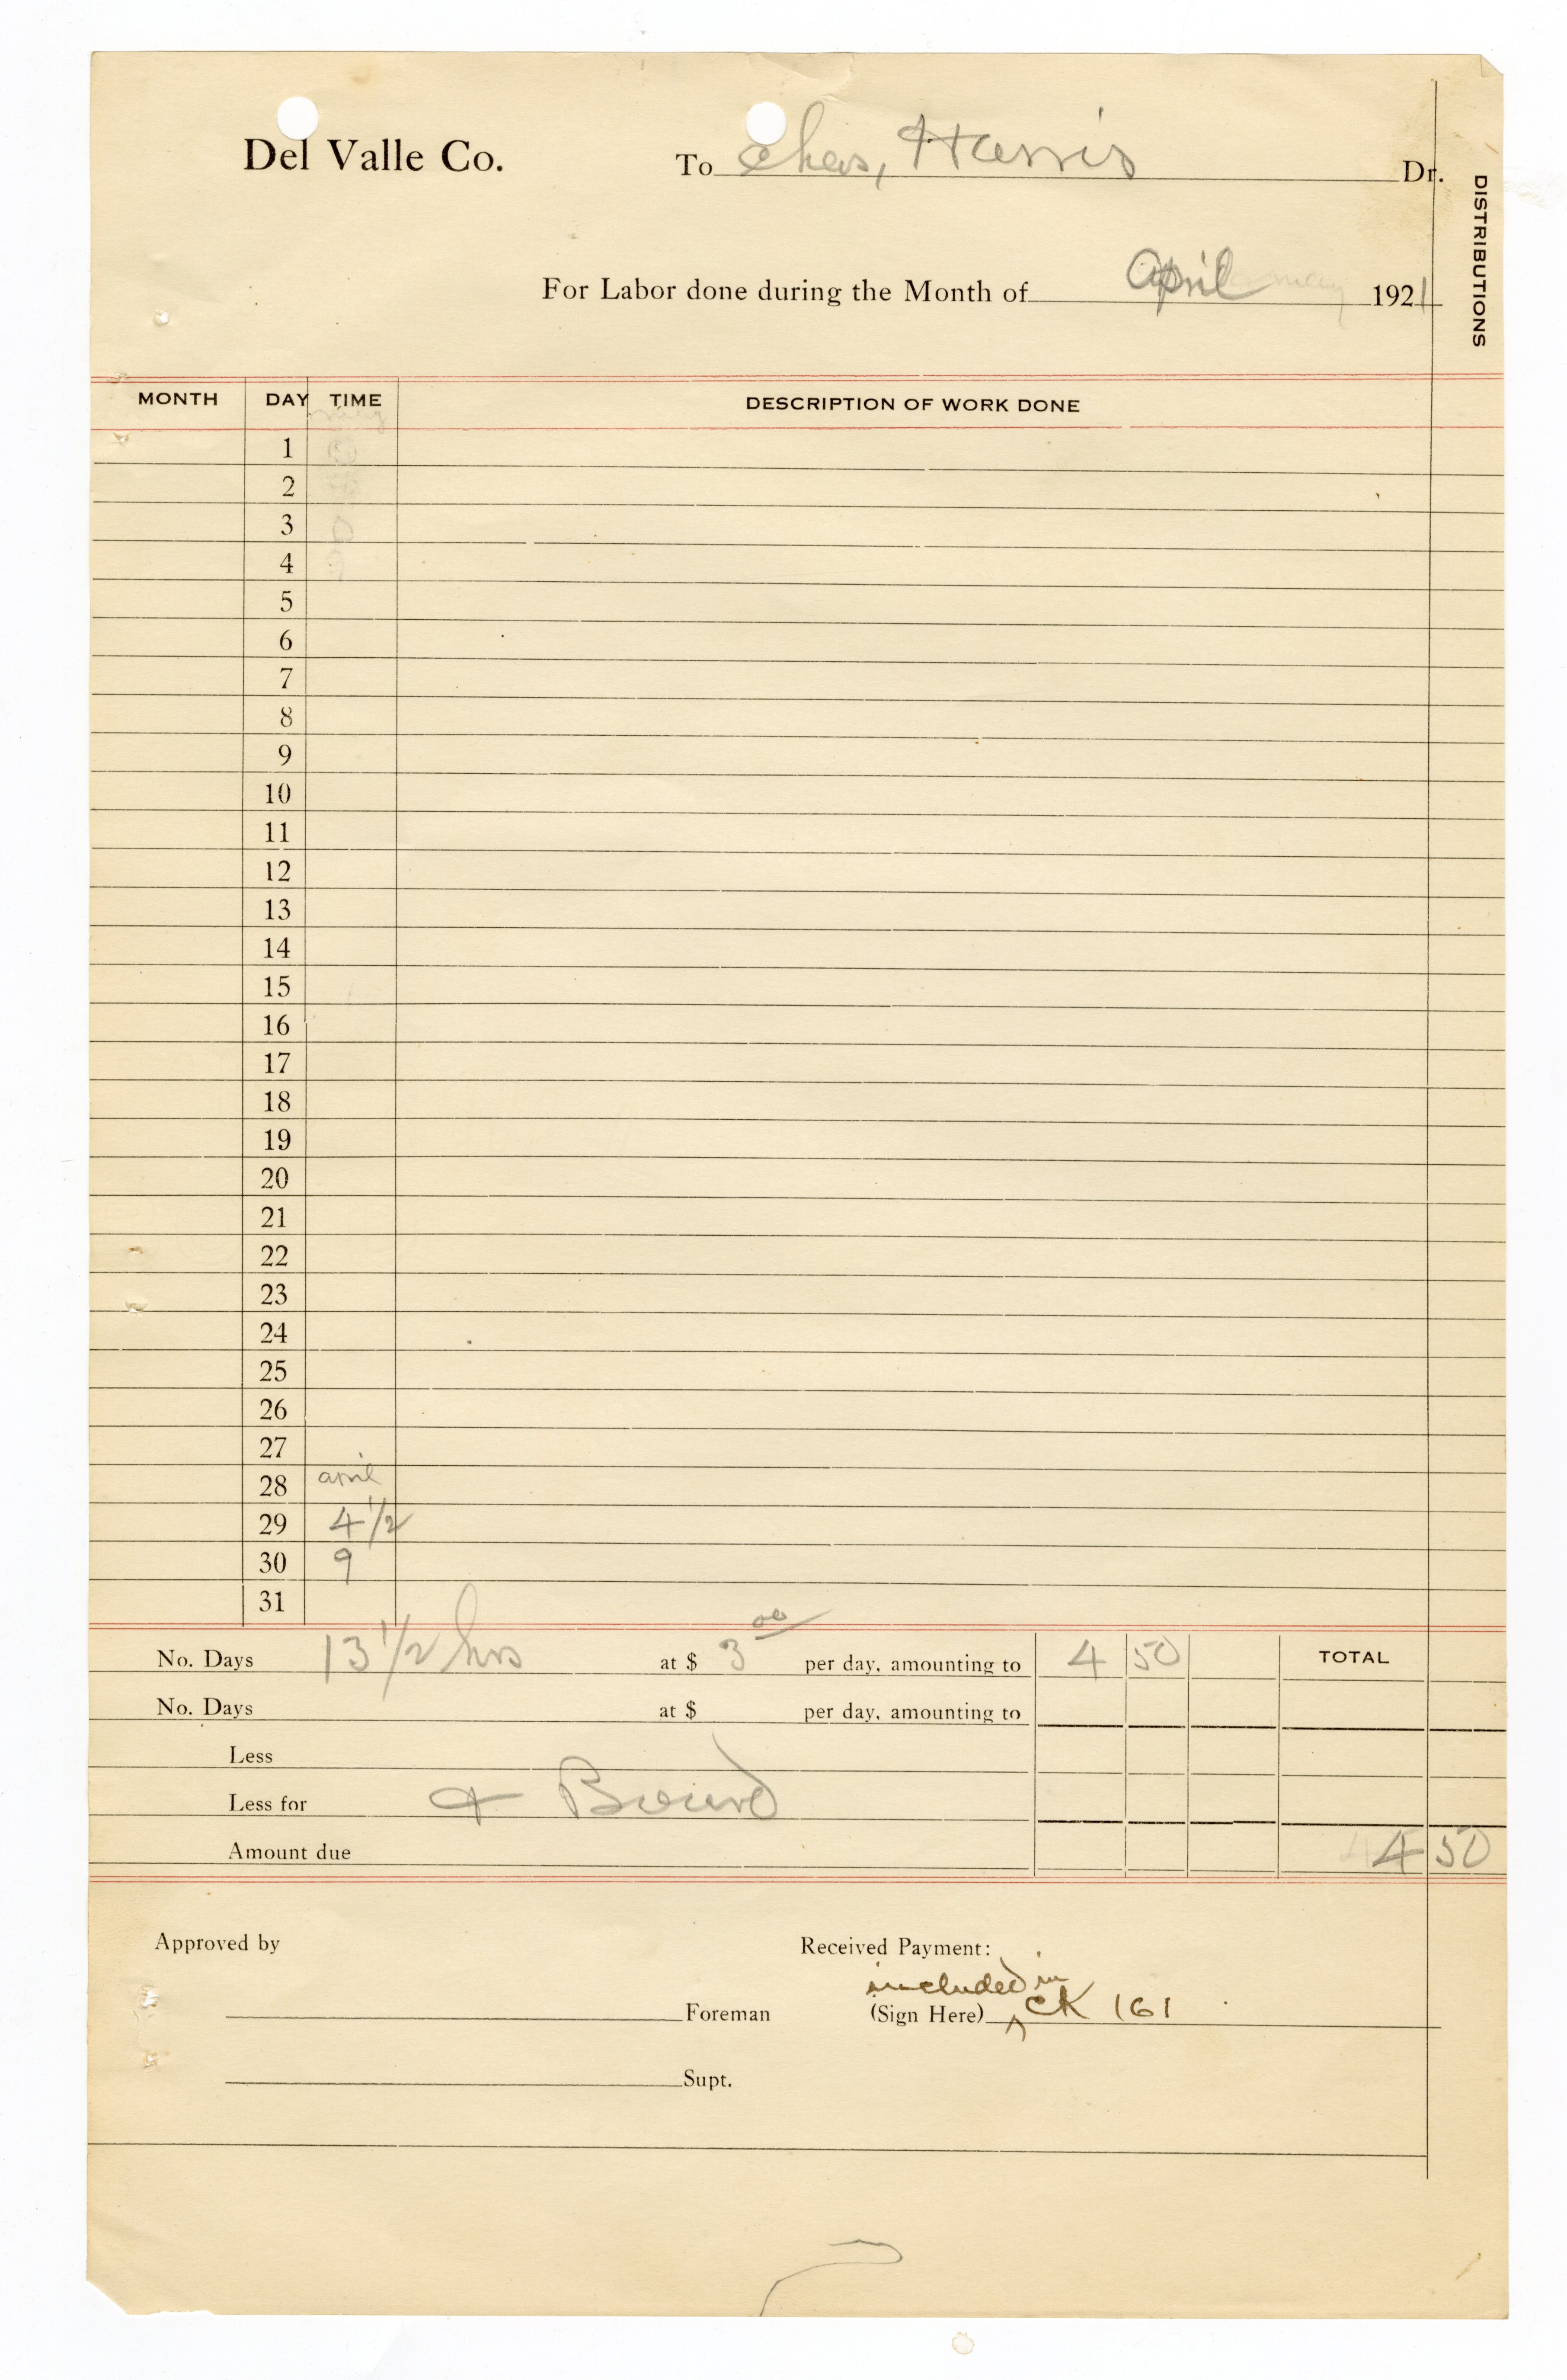 Del Valle Co. To Chas, Harris Dr.
DISTRIBUTIONS
For Labor done during the Month of April may 1921
MONTH DAY TIME DESCRIPTION OF WORK DONE
may
1
2
3
4
5
6
7
8
9
10
11
12
13
14
15
16
17
18
19
20
21
22
23
24
25
26
27
28 april
29 4 1/2
30 9
31
No. Days 13 1/2 hrs at $ 3 00 per day, amounting to 4 50 TOTAL
No. Days at $ per day, amounting to
Less
Less for + Board
Amount due 4 50
Approved by Received Payment:
included in
Foreman (Sign Here) ^ CK 161
Supt.